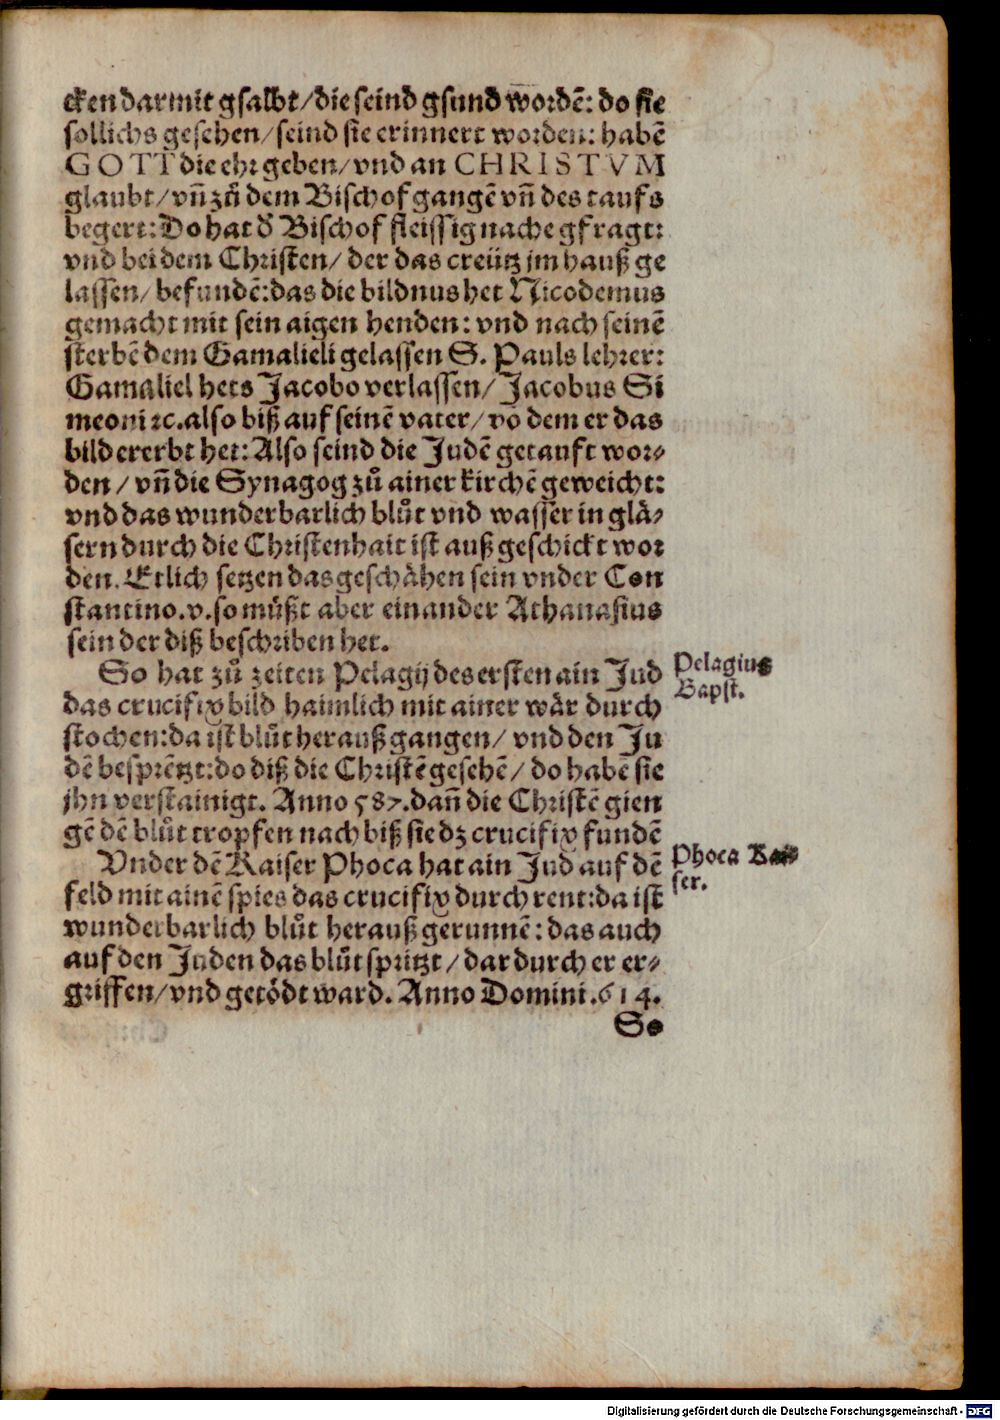 cken darmit gsalbt/die seind gsund wordẽ: do sie
sollichs gesehen/seind sie erinnert worden: habẽ
GOTT die ehr geben/vnd an CHRISTVM
glaubt/vñ zů dem Bischof gangẽ vñ des taufs
begert: Do hat d̃ Bischof fleissig nache gfragt:
vnd bei dem Christen/ der das creütz jm hauß ge
lassen/ befundẽ: das die bildnus het Nicodemus
gemacht mit sein aigen henden: vnd nach seinẽ
sterbẽ dem Gamalieli gelassen S. Pauls lehrer:
Gamaliel hets Jacobo verlassen/ Jacobus Si
meoni ꝛc. also biß auf seinẽ vater/ võ dem er das
bild ererbt het: Also seind die Judẽ getauft wor⸗
den/ vñ die Synagog zů ainer kirchẽ geweicht:
vnd das wunderbarlich blůt vnd wasser in glä⸗
sern durch die Christenhait ist auß geschickt wor
den. Etlich setzen das geschähen sein vnder Con
stantino. v. so můßt aber einander Athanasius
sein der diß beschriben het.
So hat zů zeiten Pelagij des ersten ain Jud
das crucifix bild haimlich mit ainer wär durch
stochen: da ist blůt herauß gangen/ vnd den Ju
dẽ besprẽtzt: do diß die Christẽ gesehẽ/ do habẽ sie
jhn verstainigt. Anno 587. dañ die Christẽ gien
gẽ dẽ blůt tropfen nach biß sie dz crucifix fundẽ
Vnder dẽ Kaiser Phoca hat ain Jud auf dẽ
feld mit ainẽ spies das crucifix durch rent: da ist
wunderbarlich blůt herauß gerunnẽ: das auch
auf den Juden das blůt spritzt/ dardurch er er⸗
griffen/ vnd getödt ward. Anno Domini. 614.
So
Pelagius
Bapst.
Phoca Kai
ser.
Digitalisierung gefördert durch die Deutsche Forschungsgemeinschaft - DFG